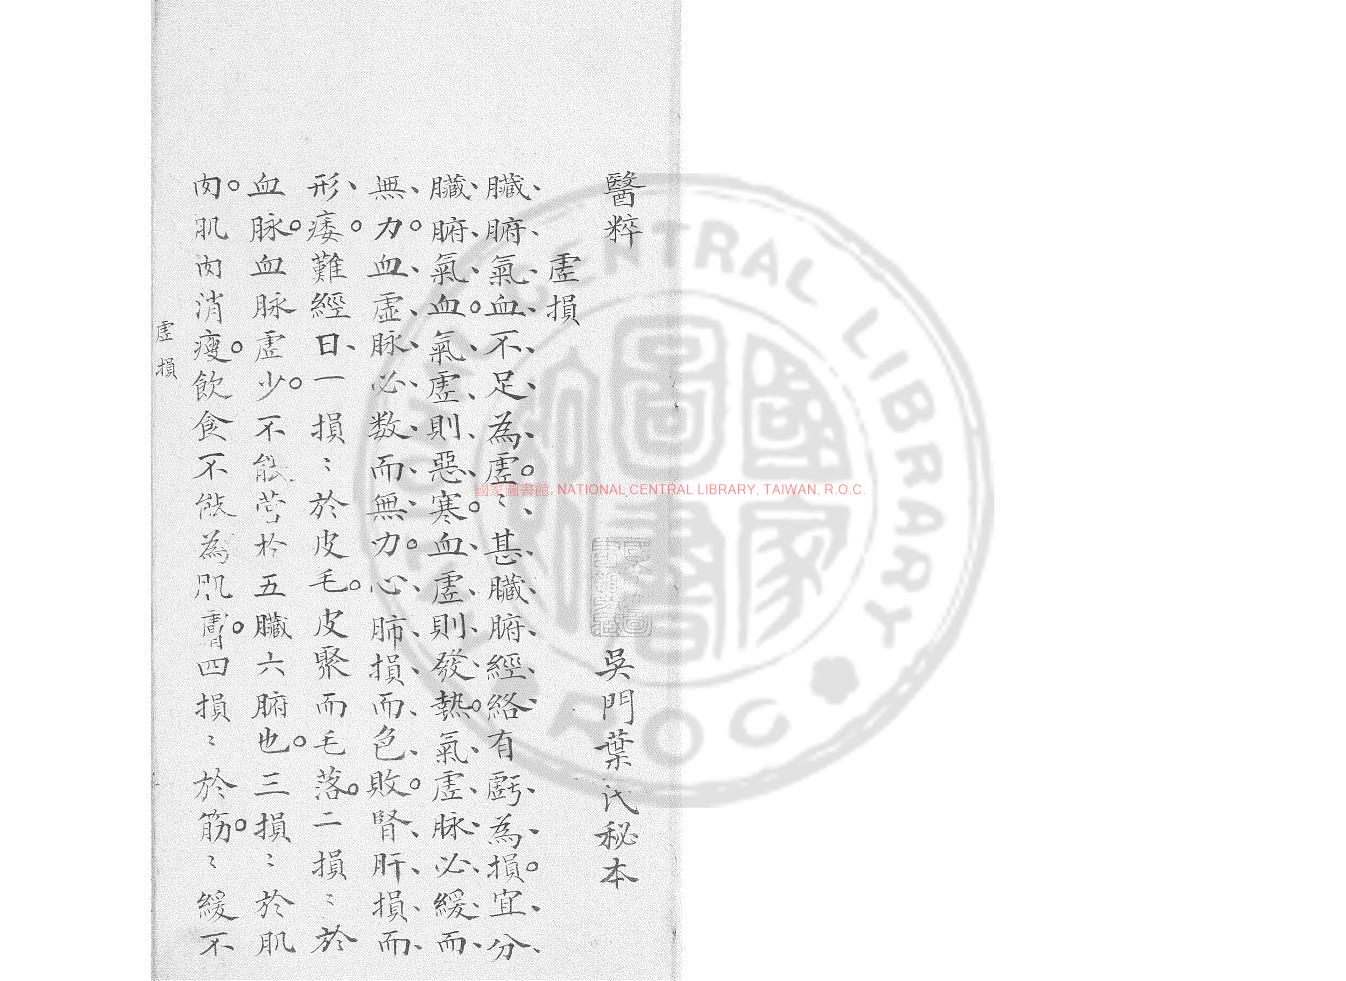 醫粹
吳門葉氏秘本
虛損
臟、腑、氣、血、不、足、為、虛。〻、甚、臟、腑、經、絡、有虧、為、損。宜、分、
臟、腑、氣、血。氣、虛、則、惡、寒。血、虛、則、發、熱。氣、虛、脉、必、緩、而、
無、力。血、虛、脉、必、数、而、無、力。心、肺、損、而、色、敗。腎、肝、損、而、
形、痿。難經曰、一損〻於皮毛。皮聚而毛落。二損〻於
血脉。血脉虛少。不能營於五臟六腑也。三損〻於肌
肉。肌肉消瘦。飲食不能為肌膚。四損〻於筋。〻緩不
虛損
國家圖書館, NATIONAL CENTRAL LIBRARY, TAIWAN, R.O.C.
NATIONAL CENTRAL LIBRARY
ROC
國家圖書館